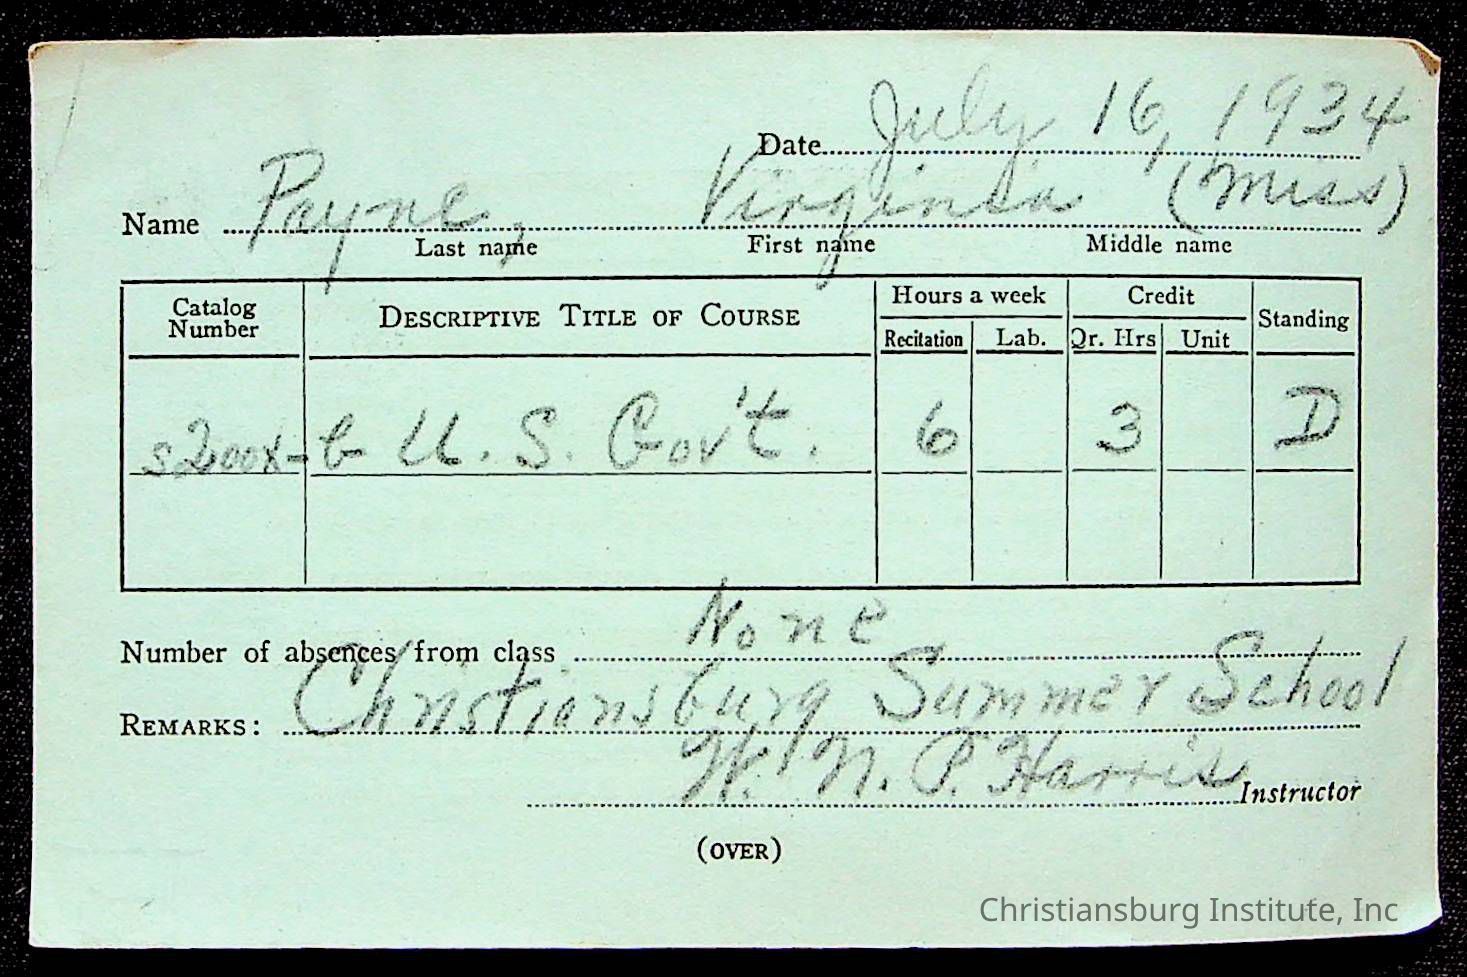 Date July 16, 1934
Name Payne, Virginia (Miss)
Last name First name Middle name
Catalog Number DESCRIPTIVE TITLE OF COURSE Hours a week Credit Standing
Recitation Lab. Qr. Hrs Unit
s200x-b U. S. Gov't. 6 3 D
Number of absences from class None
REMARKS: Christiansburg Summer School
W. N. P. Harris Instructor
(OVER)
Christiansburg Institute, Inc